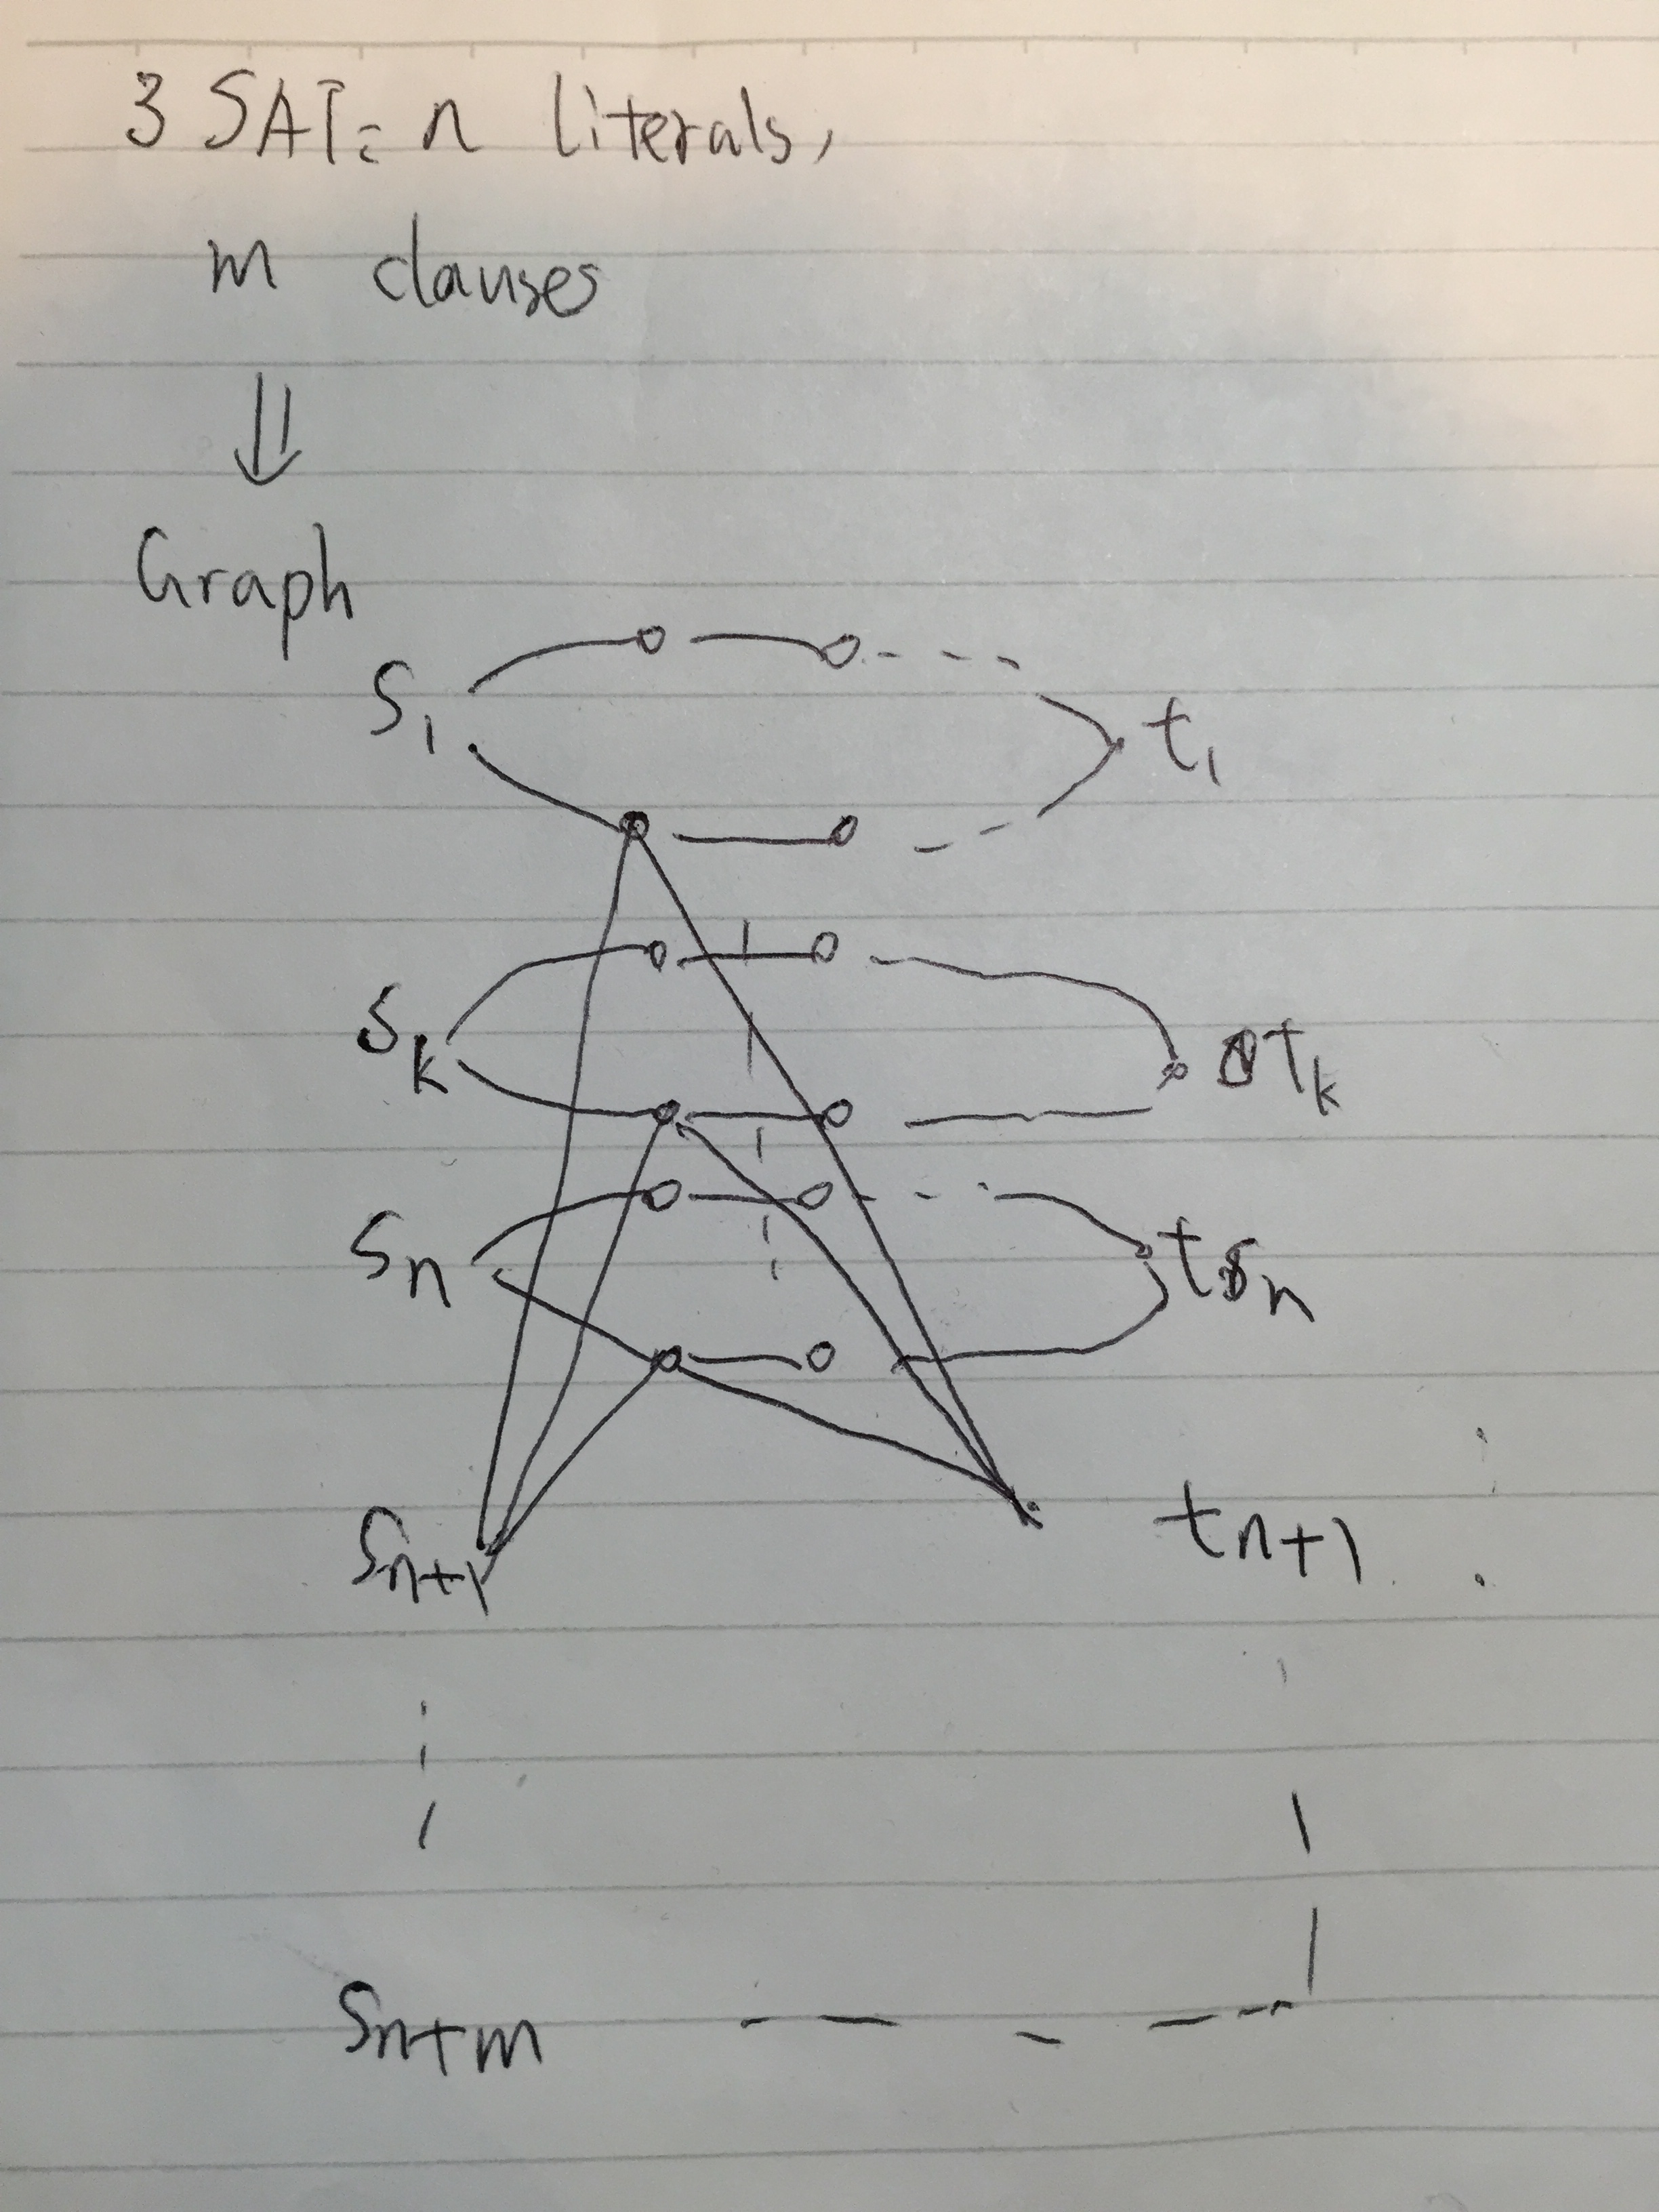 3 SAT: n literals,
m clauses
⇓
Graph
S1 t1
Sk tk
Sn tn
Sn+1 tn+1
Sn+m